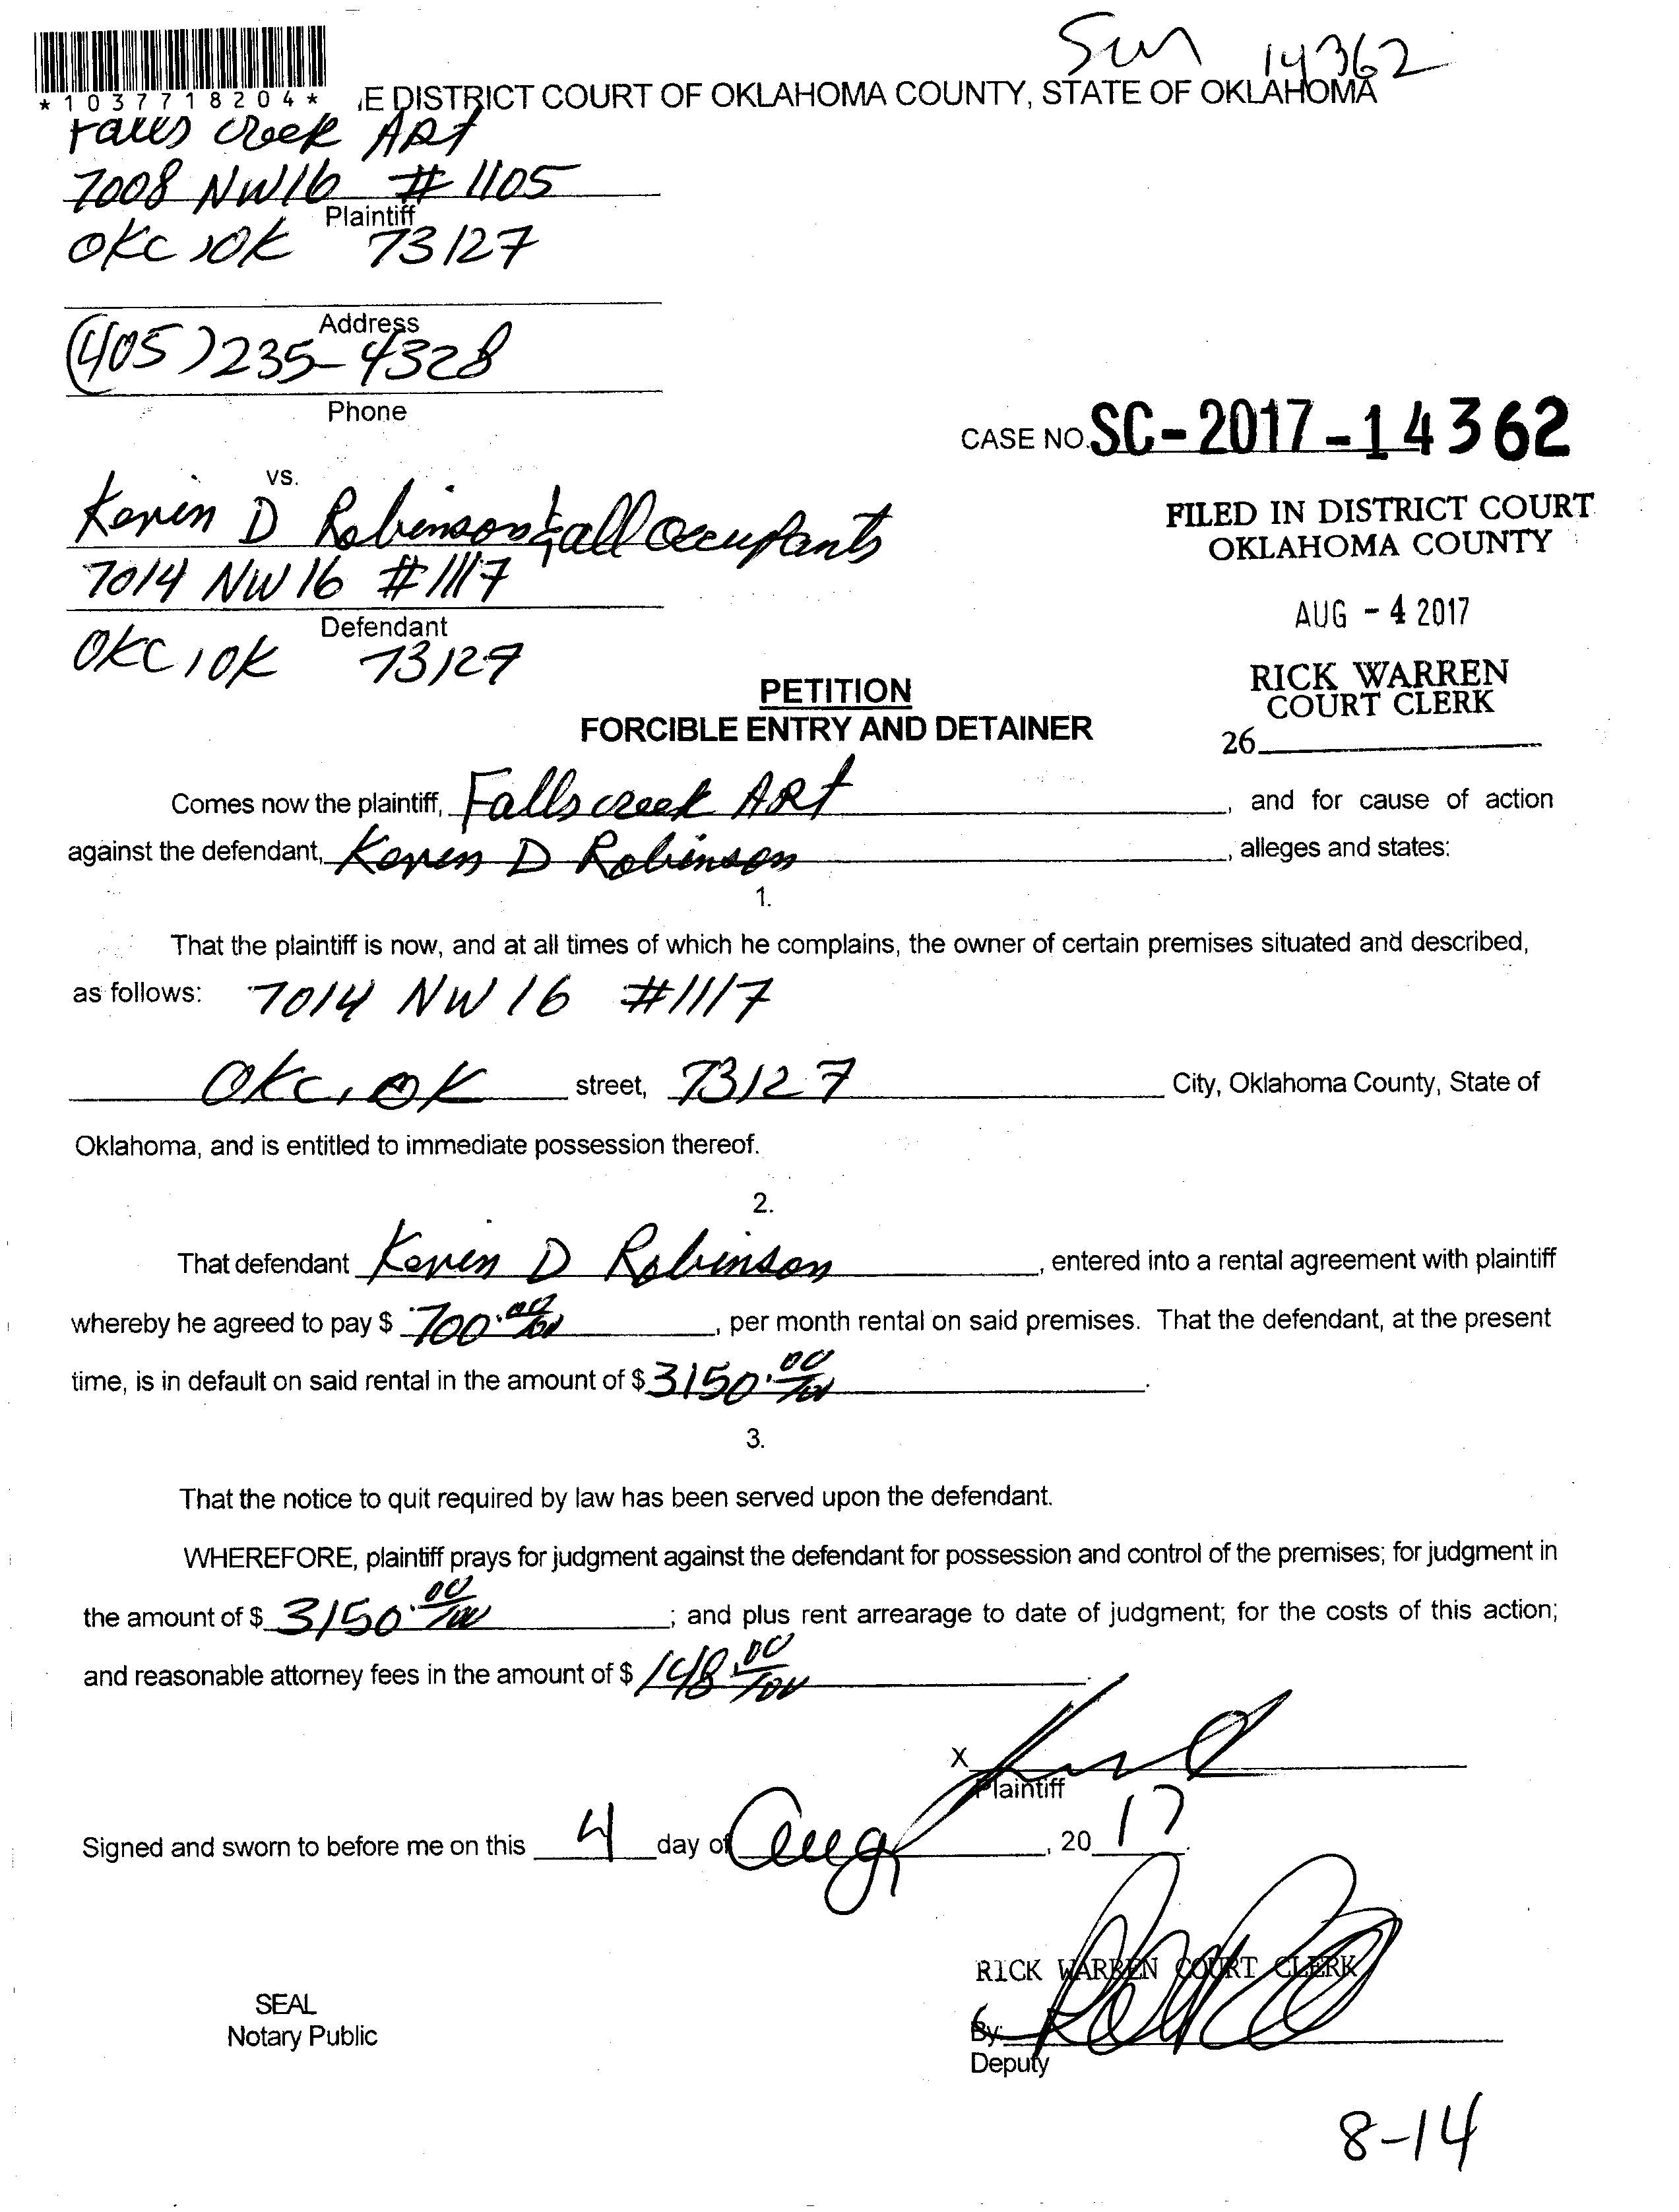 Sum 14362
*1037718204*
E DISTRICT COURT OF OKLAHOMA COUNTY, STATE OF OKLAHOMA
Falls creek ARt
7008 NW16 # 1105
Plaintiff
OKC, OK 73127
Address
(405) 235-4328
Phone
CASE NO. SC-2017-14362
vs.
Keven D Robinson & all occupants
7014 NW 16 #1117
Defendant
OKC, OK 73127
FILED IN DISTRICT COURT
OKLAHOMA COUNTY
AUG - 4 2017
RICK WARREN
COURT CLERK
26
PETITION
FORCIBLE ENTRY AND DETAINER
Comes now the plaintiff, Falls creek ARt, and for cause of action
against the defendant, Keven D Robinson, alleges and states:
1.
That the plaintiff is now, and at all times of which he complains, the owner of certain premises situated and described,
as follows: 7014 NW 16 #1117
OKC, OK street, 73127 City, Oklahoma County, State of
Oklahoma, and is entitled to immediate possession thereof.
2.
That defendant Keven D Robinson, entered into a rental agreement with plaintiff
whereby he agreed to pay $ 700.00/100, per month rental on said premises. That the defendant, at the present
time, is in default on said rental in the amount of $ 3150.00/100.
3.
That the notice to quit required by law has been served upon the defendant.
WHEREFORE, plaintiff prays for judgment against the defendant for possession and control of the premises; for judgment in
the amount of $ 3150.00/100; and plus rent arrearage to date of judgment; for the costs of this action;
and reasonable attorney fees in the amount of $ 148.00/100.
X
Plaintiff
Signed and sworn to before me on this 4 day of Aug, 20 17.
RICK WARREN COURT CLERK
SEAL
Notary Public
By:
Deputy
8-14